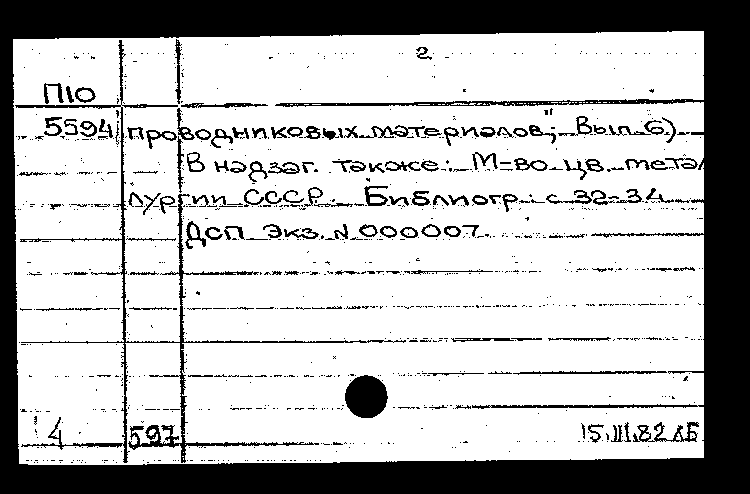 2
П10
5594 проводниковых материалов"; Вып. 6)
В надзаг. также: М-во цв. метал
лургии СССР. Библиогр.: с 32-34
ДСП Экз. N 000007.
4 597 15.III.82 ЛБ